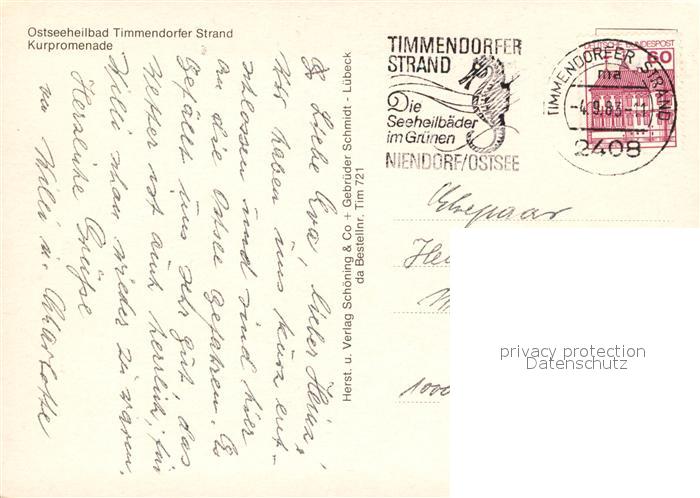 Ostseeheilbad Timmendorfer Strand
Kurpromenade
Liebe Eva, lieber Heinz,
Wir haben uns kurz ent-
schlossen und sind hier
an die Ostsee gefahren. Es
gefällt uns sehr gut, das
Wetter ist auch herrlich, für
Willi schon wieder zu warm.
Herzliche Grüße
Willi u. Charlotte
Herst. u. Verlag Schöning & Co + Gebrüder Schmidt - Lübeck
da Bestellnr. Tim 721
TIMMENDORFER
STRAND
Die
Seeheilbäder
im Grünen
NIENDORF/OSTSEE
DEUTSCHE BUNDESPOST
60
TIMMENDORFER STRAND
ma
-4.9.83.-11
2408
Ehepaar
1000
privacy protection
Datenschutz